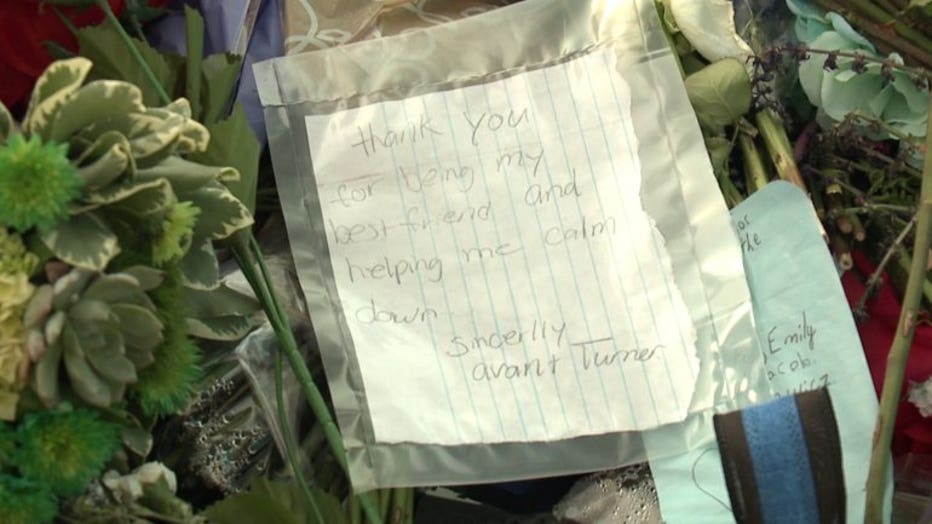 thank you
for being my
best friend and
helping me calm
down
sincerlly
avant Turner
the
Emily